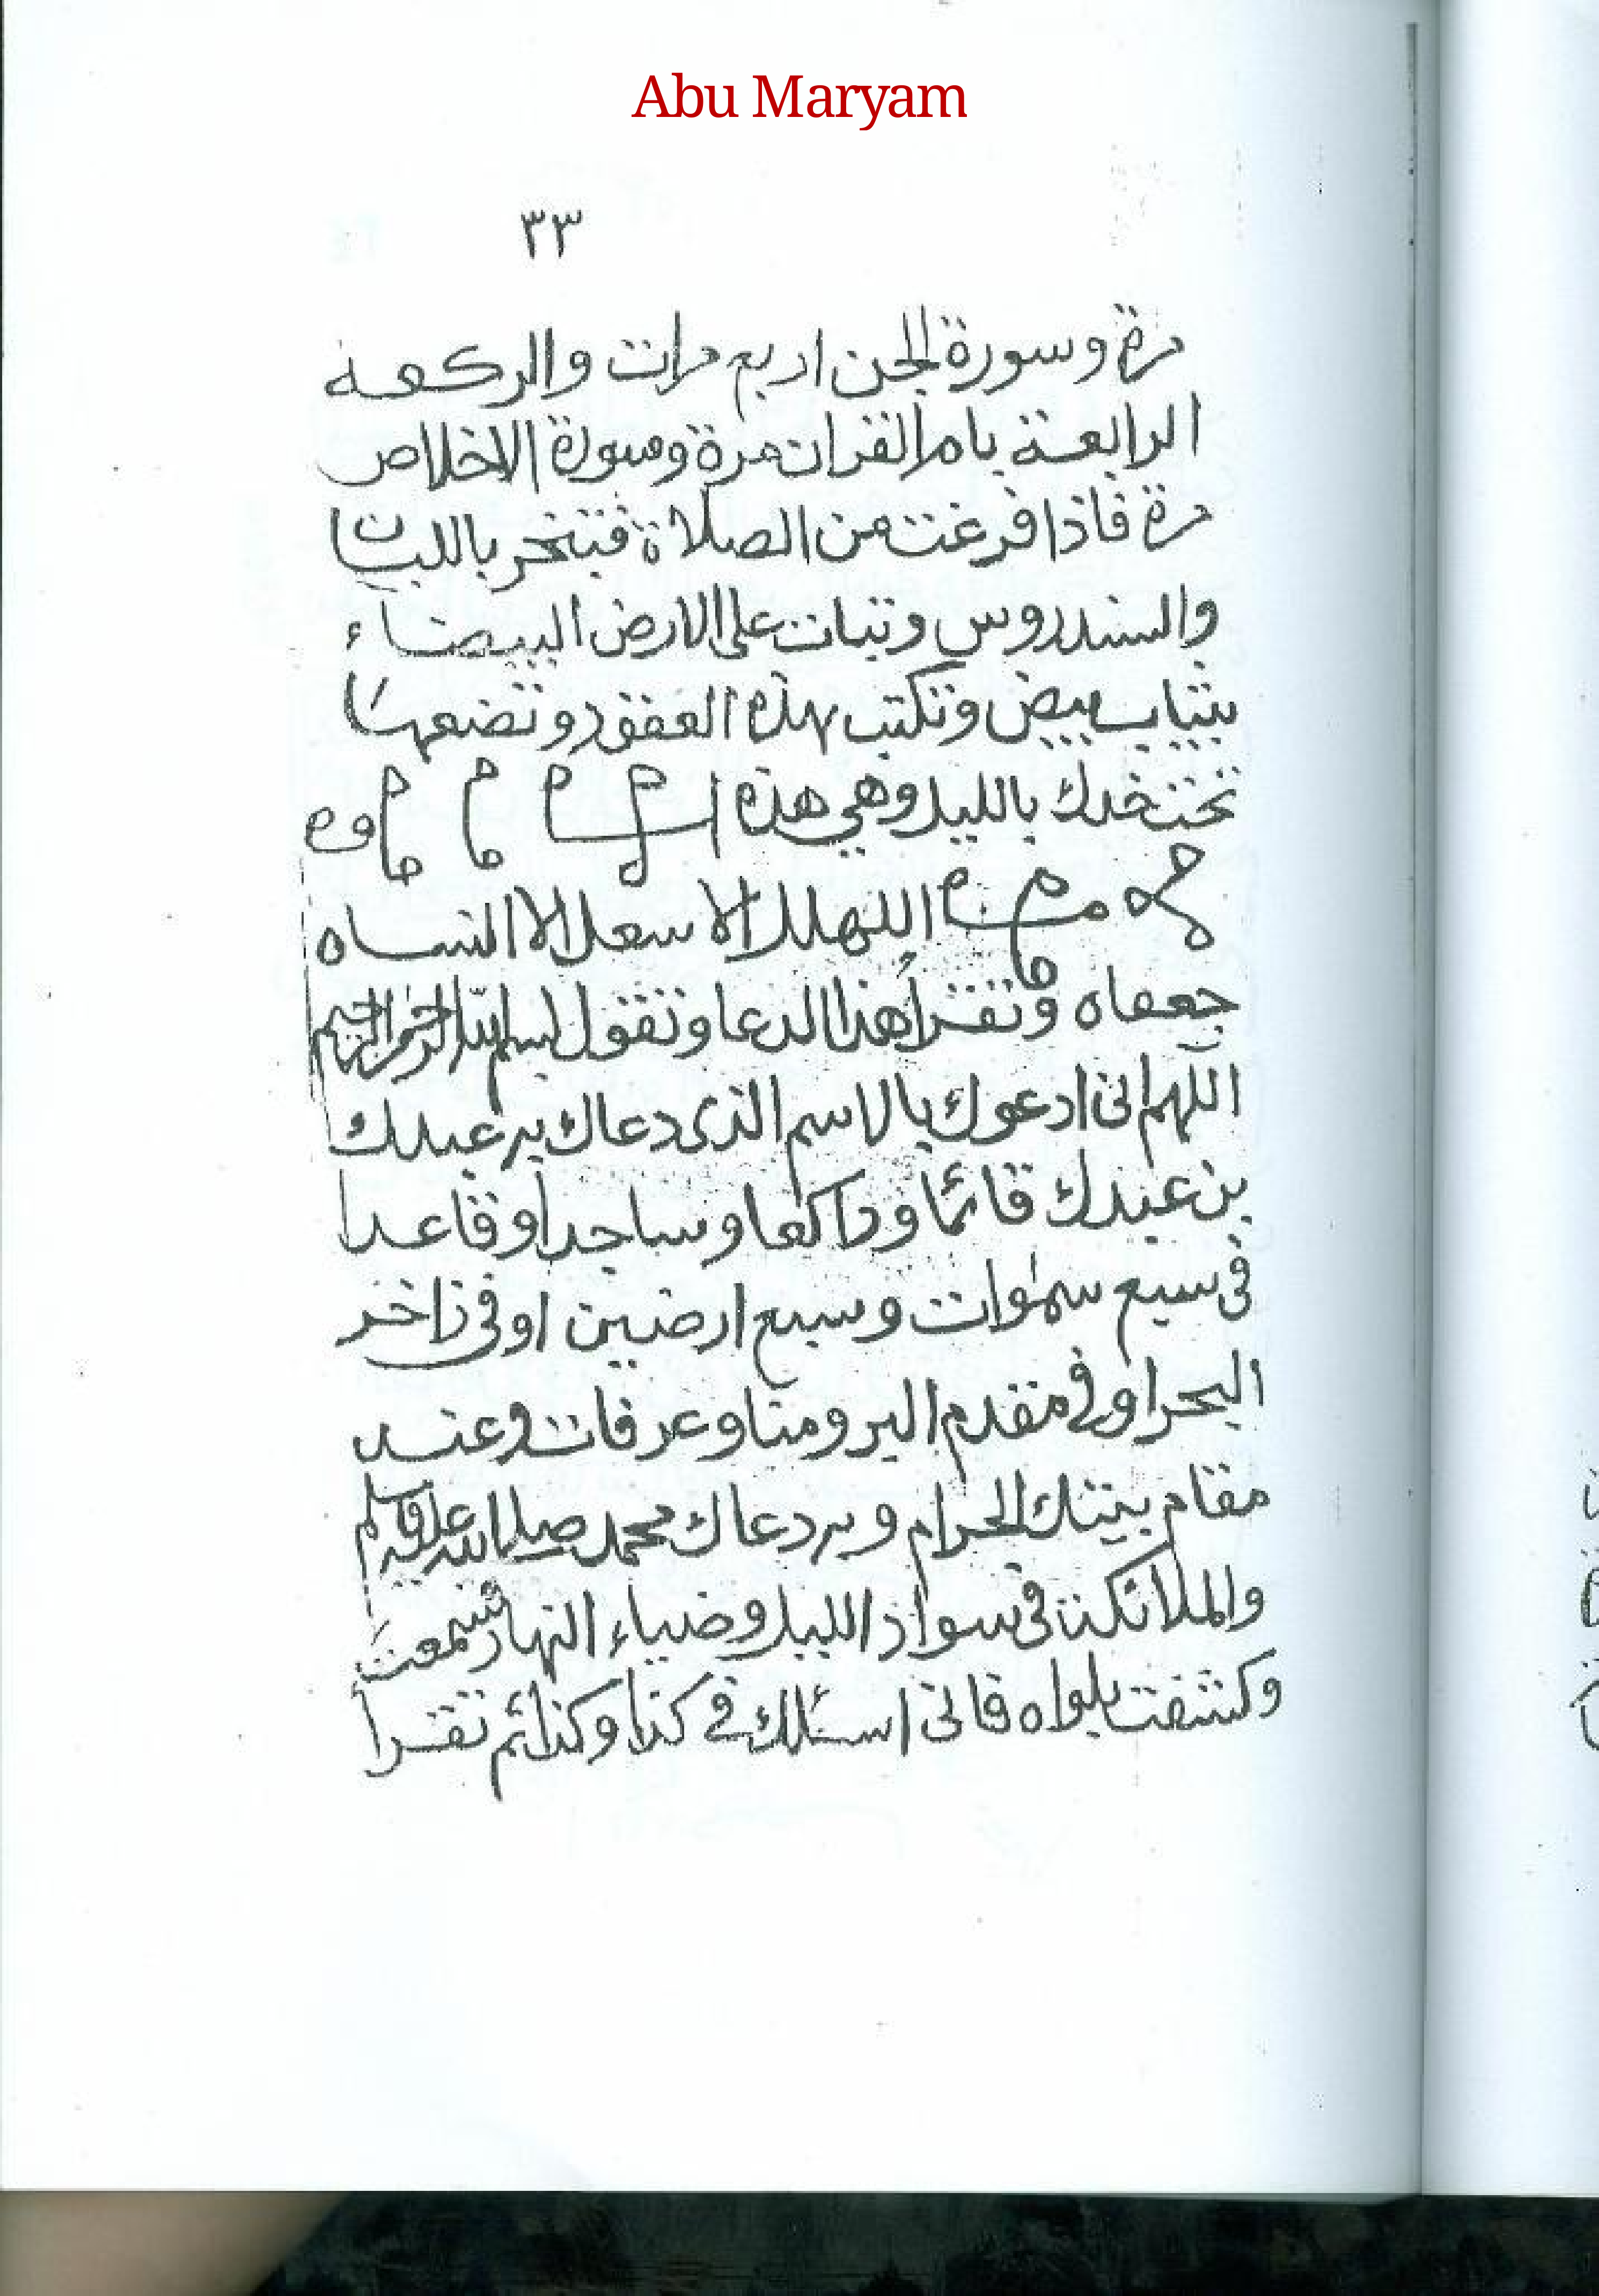 Abu Maryam
٣٣
مرة وسورة الجن اربع مرات والركعة
الرابعة بام القران مرة وسورة الاخلاص
مرة فاذا فرغت من الصلاة فتبخر باللبان
والسندروس وتبات على الارض البيضاء
بثياب بيض وتكتب بهذه العقود وتضعها
تحت خدك بالليل وهي هذه
اللهلل الا سعل الا النساه
جعفاه وتقرأ هذا الدعا وتقول بسم الله الرحمن الرحيم
اللهم انى ادعوك بالاسم الذى دعاك به عبدك
بن عبدك قائما وراكعا وساجدا وقاعدا
فى سبع سموات وسبع ارضين او فى زاخر
البحر او فى مقدم البر ومنا وعرفات وعند
مقام بيتك الحرام وبه دعاك محمد صلى الله عليه وسلم
والملائكة فى سواد الليل وضياء النهار فسمعت
وكشفت بلواه فانى اسئلك فى كذا وكذا ثم تقرأ